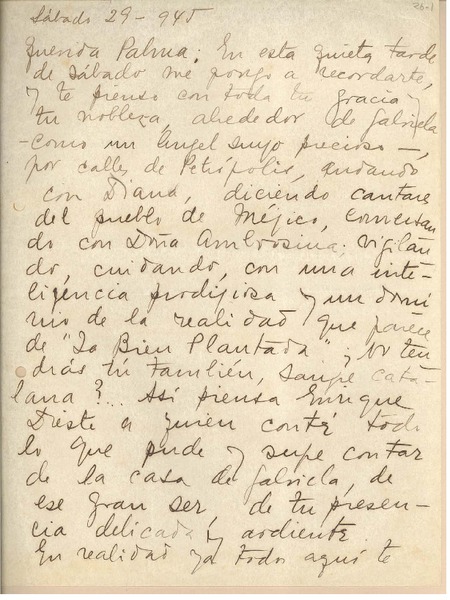 Sábado 29 - 945
Querida Palma: En esta quieta tarde
de sábado me pongo a recordarte,
y te pienso con toda tu gracia y
tu nobleza, alrededor de Gabriela
- como un Ángel suyo precioso -,
por calles de Petrópolis, andando
con Diana, diciendo cantares
del pueblo de Méjico, conversan
do con Doña Ambrosina; vigilán
do, cuidando, con una inte-
ligencia prodigiosa y un domi
nio de la realidad que parece
de "La Bien Plantada". ¿No ten
drás tú también, sangre cata-
lana?... Así piensa Enrique
Dieste a quien conté todo
lo que pude y supe contar
de la casa de Gabriela, de
ese gran ser, de tu presen-
cia delicada y ardiente.
En realidad ya todos aquí te